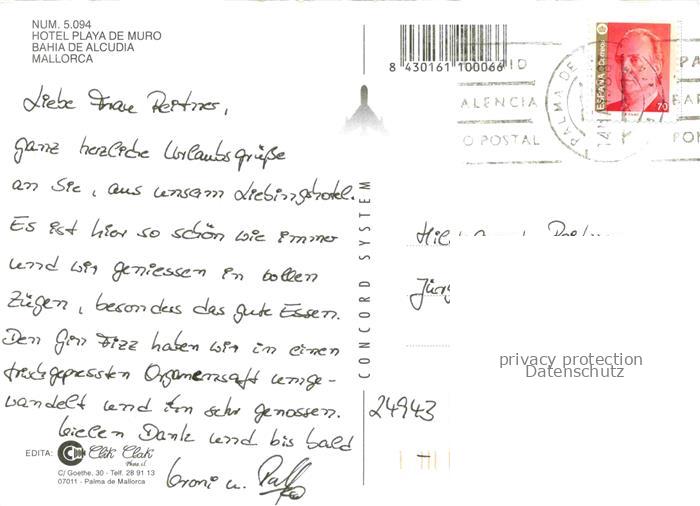 NUM. 5.094
HOTEL PLAYA DE MURO
BAHIA DE ALCUDIA
MALLORCA
8 430161 100066
ID
ALENCIA
O POSTAL
PALMA DE
ESPAÑA
Correos
70
Liebe Frau Reitner,
ganz herzliche Urlaubsgrüße
an Sie, aus unserm Lieblingshotel.
Es ist hier so schön wie immer
und wir geniessen in vollen
Zügen, besonders das gute Essen.
Den Gin Fizz haben wir in einen
frischgepressten Organensaft umge-
wandelt und ihn sehr genossen.
Vielen Dank und bis bald
Vroni u.
CONCORD SYSTEM
privacy protection
Datenschutz
24943
EDITA:
Clik Clak
C/ Goethe, 30 - Telf. 28 91 13
07011 - Palma de Mallorca